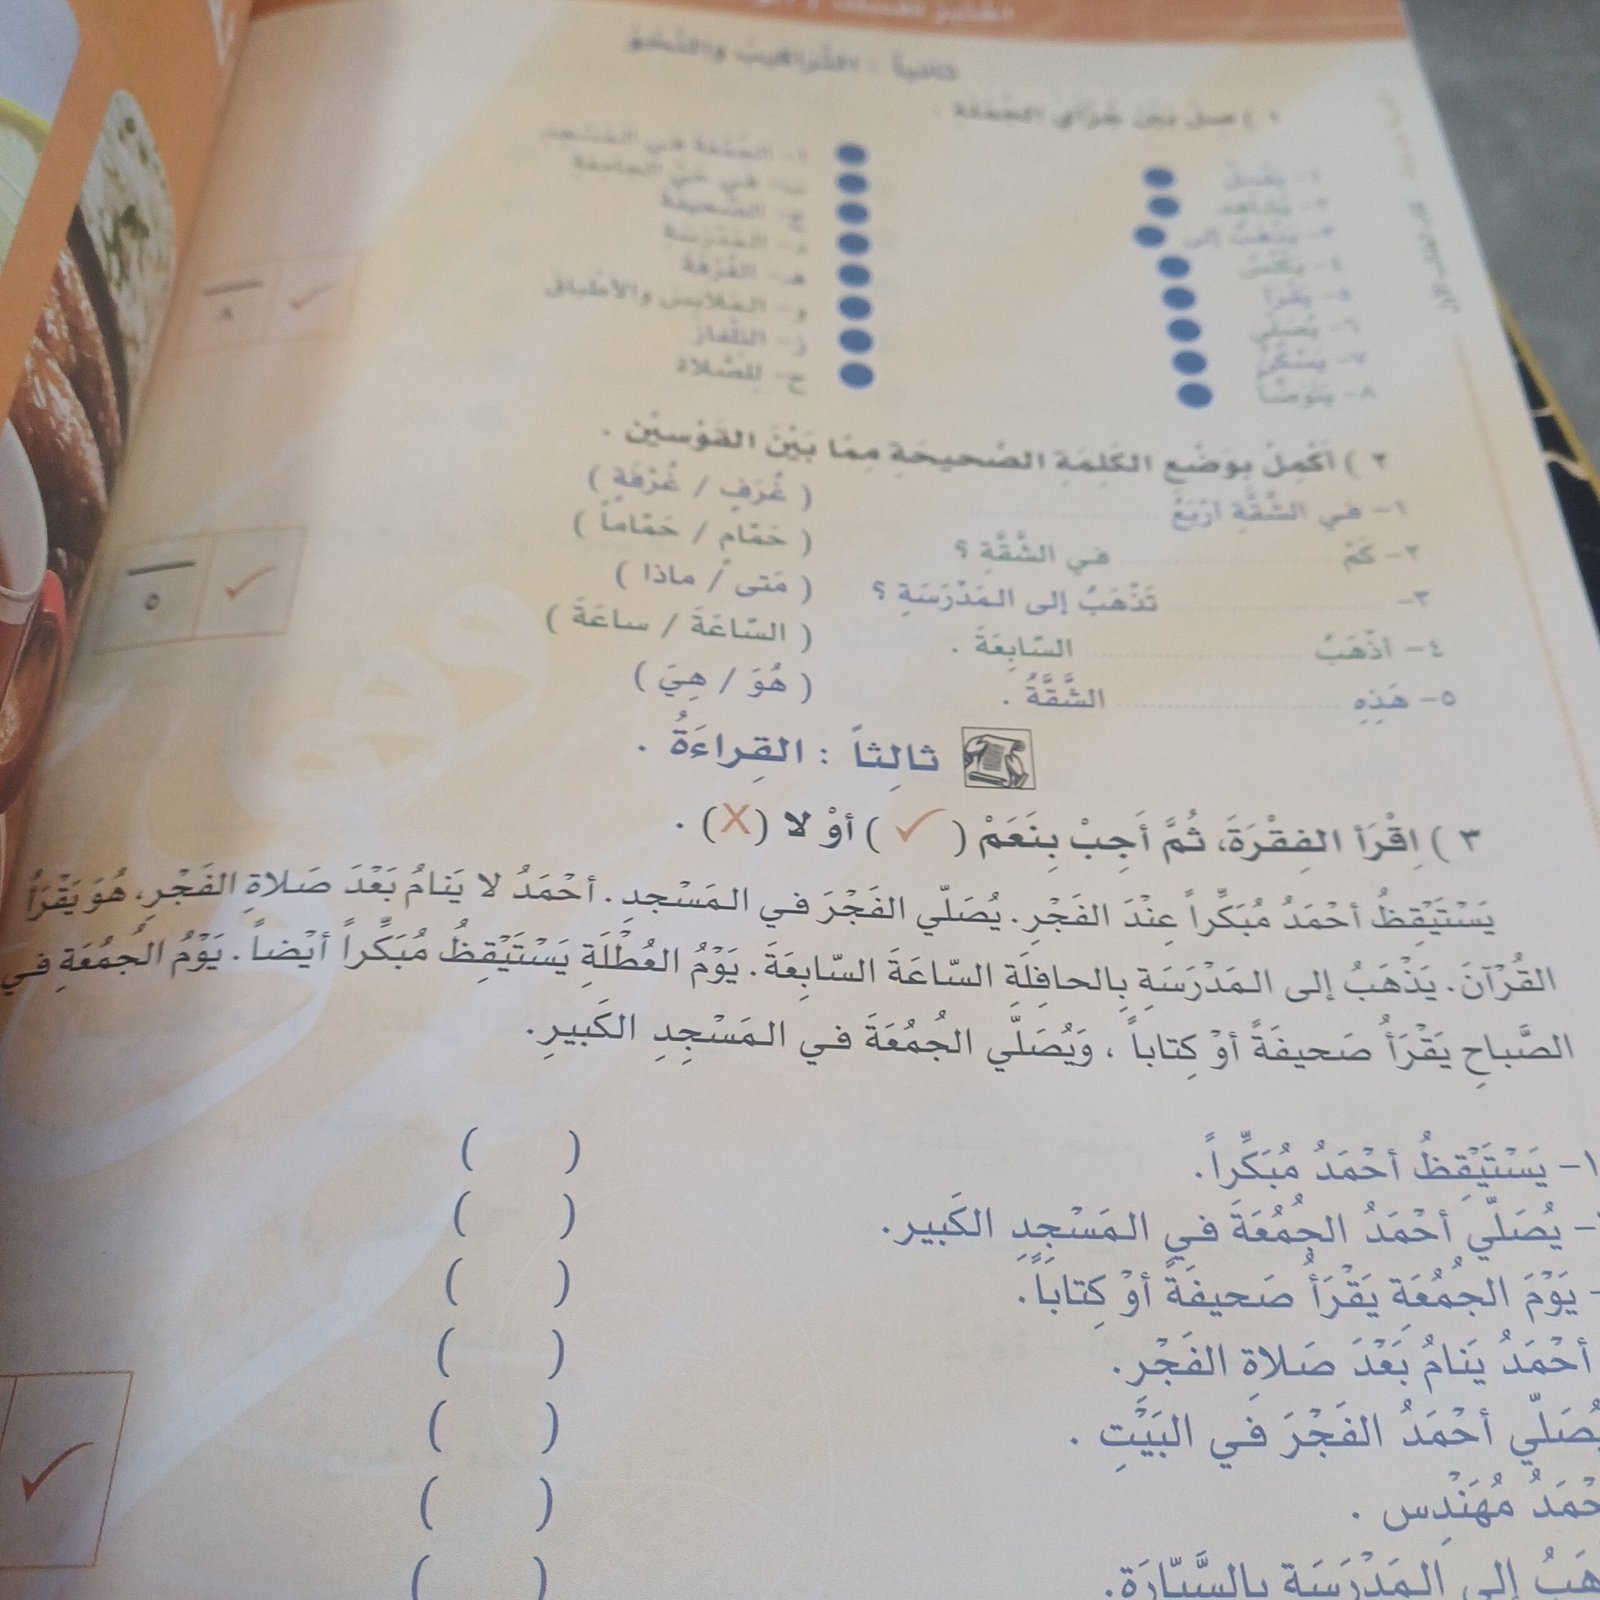 ثانياً : التَّراكيبُ والنَّحْوُ
١ ) صِلْ بَيْنَ جُزْأَيِ الجُمْلَةِ .
١- يَغْسِلُ
أ- الجُمُعَةَ في المَسْجِدِ
٢- يُشاهِدُ
ب- في حَيِّ الجامِعَةِ
٣- يَذْهَبُ إلى
ج- الصَّحيفَةَ
٤- يَكْنُسُ
د- المَدْرَسَةِ
٥- يَقْرَأُ
هـ- الغُرْفَةَ
٦- يُصَلّي
و- المَلابِسَ والأَطْباقَ
٧- يَسْكُنُ
ز- التِّلْفازَ
٨- يَتَوَضَّأُ
ح- لِلصَّلاةِ
٨
٢ ) أَكْمِلْ بِوَضْعِ الكَلِمَةِ الصَّحيحَةِ مِمّا بَيْنَ القَوْسَيْنِ .
١- في الشَّقَّةِ أَرْبَعُ ( غُرَفٍ / غُرْفَةٍ )
٢- كَمْ في الشَّقَّةِ ؟ ( حَمّامٍ / حَمّاماً )
٣- تَذْهَبُ إلى المَدْرَسَةِ ؟ ( مَتى / ماذا )
٤- أَذْهَبُ السّابِعَةَ . ( السّاعَةَ / ساعَةَ )
٥- هَذِهِ الشَّقَّةُ . ( هُوَ / هِيَ )
٥
ثالِثاً : القِراءَةُ .
٣ ) اِقْرَأ الفِقْرَةَ، ثُمَّ أَجِبْ بِنَعَمْ ( ✓ ) أَوْ لا (X) .
يَسْتَيْقِظُ أَحْمَدُ مُبَكِّراً عِنْدَ الفَجْرِ. يُصَلّي الفَجْرَ في المَسْجِدِ. أَحْمَدُ لا يَنامُ بَعْدَ صَلاةِ الفَجْرِ، هُوَ يَقْرَأُ
القُرْآنَ. يَذْهَبُ إلى المَدْرَسَةِ بِالحافِلَةِ السّاعَةَ السّابِعَةَ. يَوْمُ العُطْلَةِ يَسْتَيْقِظُ مُبَكِّراً أَيْضاً. يَوْمُ الجُمُعَةِ في
الصَّباحِ يَقْرَأُ صَحيفَةً أَوْ كِتاباً ، وَيُصَلّي الجُمُعَةَ في المَسْجِدِ الكَبيرِ.
١- يَسْتَيْقِظُ أَحْمَدُ مُبَكِّراً. ( )
- يُصَلّي أَحْمَدُ الجُمُعَةَ في المَسْجِدِ الكَبير. ( )
- يَوْمَ الجُمُعَةِ يَقْرَأُ صَحيفَةً أَوْ كِتاباً. ( )
أَحْمَدُ يَنامُ بَعْدَ صَلاةِ الفَجْرِ. ( )
يُصَلّي أَحْمَدُ الفَجْرَ في البَيْتِ . ( )
حْمَدُ مُهَنْدِس . ( )
هَبُ إلى المَدْرَسَةِ بِالسَّيّارَةِ. ( )